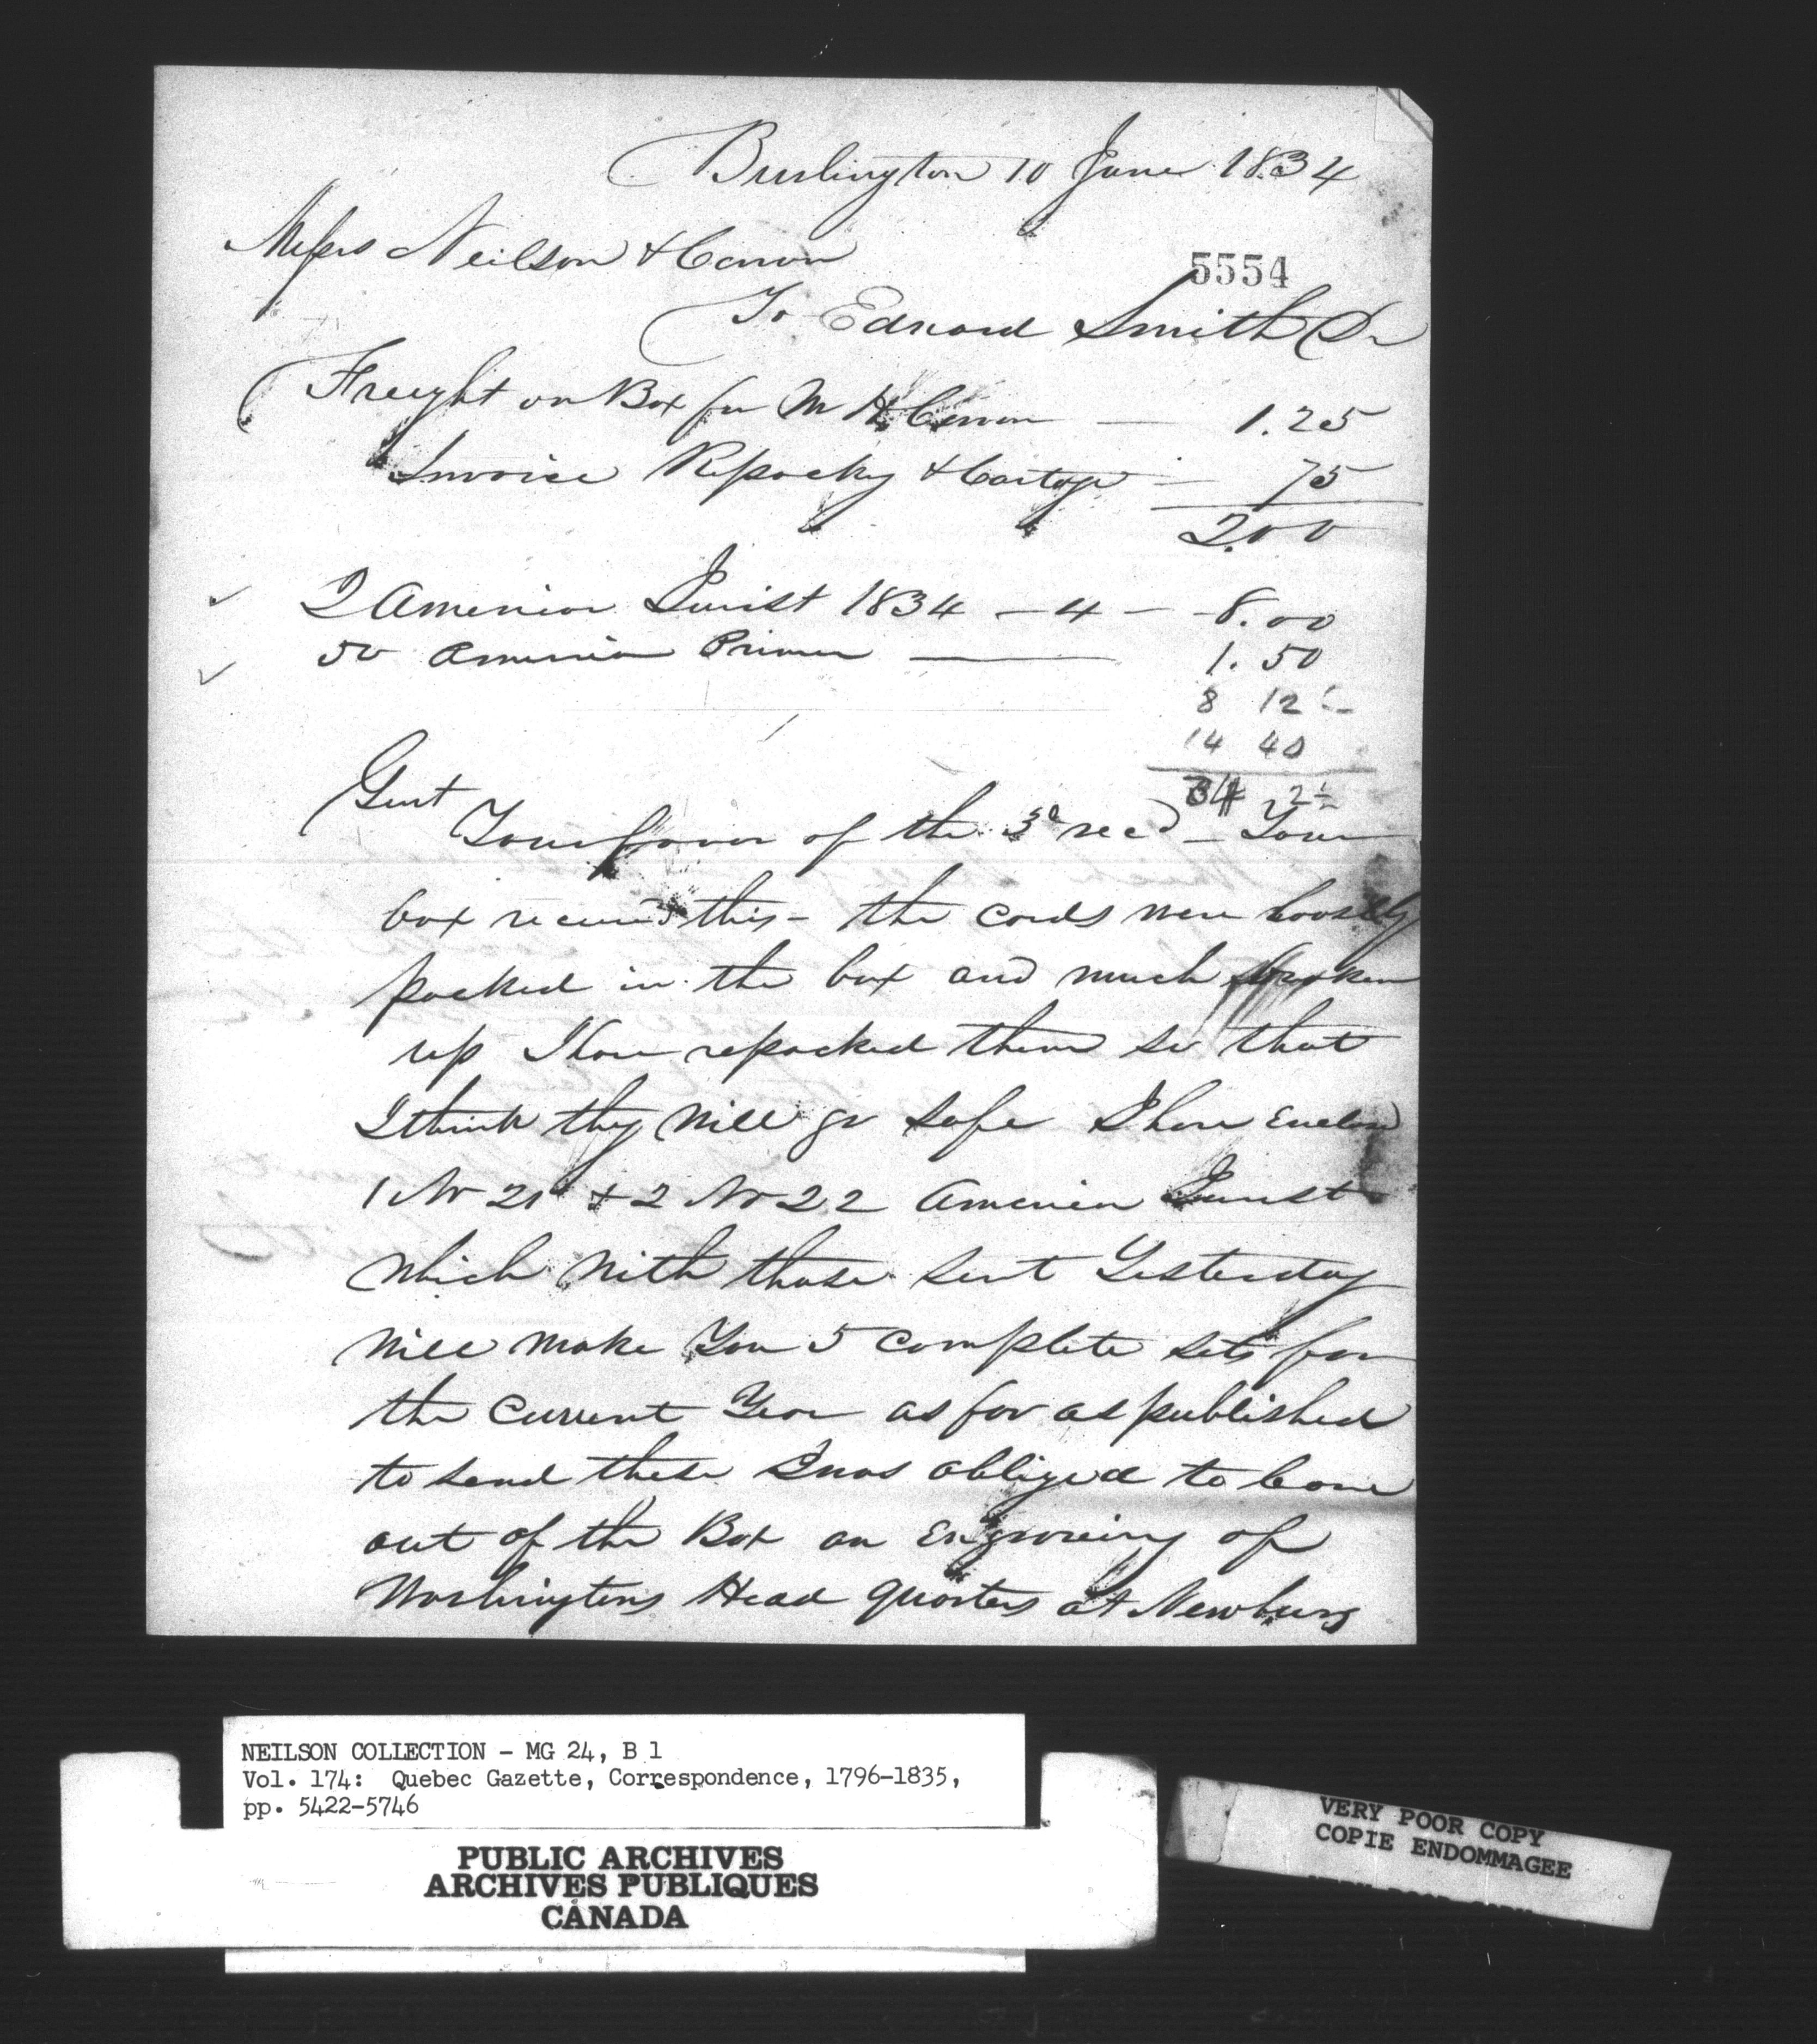 Burlington 10 June 1834
Messrs Neilson & Cowan
5554
To Edward Smith Dr
Freight on Box for Mr H Cowan — 1.25
Invoice Repacky & Cartage — 75
2.00
2 American Jurist 1834 — 4 — 8.00
50 American Primer — 1.50
8 12½
14 40
34 2½
Gent
Your favor of the 3d recd — Your
box received this — the cards were loosely
packed in the box and much broken
up I have repacked them so that
I think they will go safe I have Enclosd
1 No 21 & 2 No 22 American Jurist
which with those sent Yesterday
will make You 5 complete sets for
the current Year as far as published
to send these I was obliged to leave
out of the Box an Engraving of
Washingtons Head quarters at Newburg
NEILSON COLLECTION - MG 24, B 1
Vol. 174: Quebec Gazette, Correspondence, 1796-1835,
pp. 5422-5746
PUBLIC ARCHIVES
ARCHIVES PUBLIQUES
CANADA
VERY POOR COPY
COPIE ENDOMMAGEE